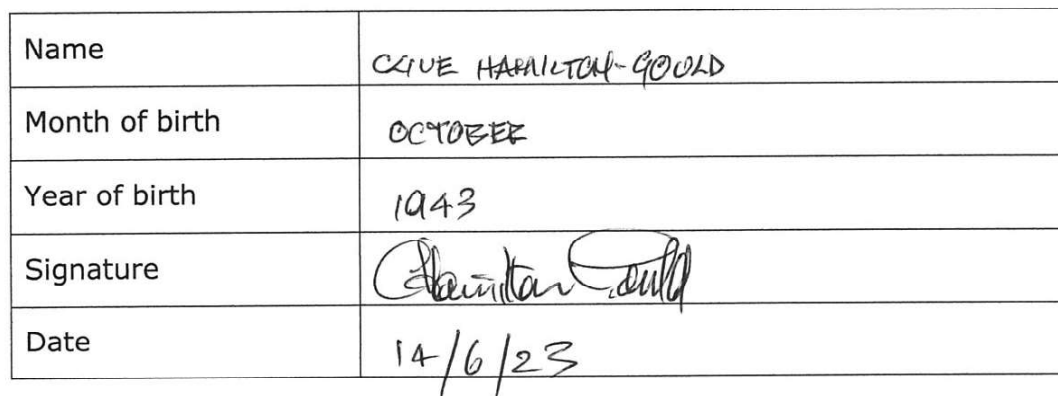 Name CLIVE HAMILTON-GOULD
Month of birth OCTOBER
Year of birth 1943
Signature CHamilton Gould
Date 14/6/23